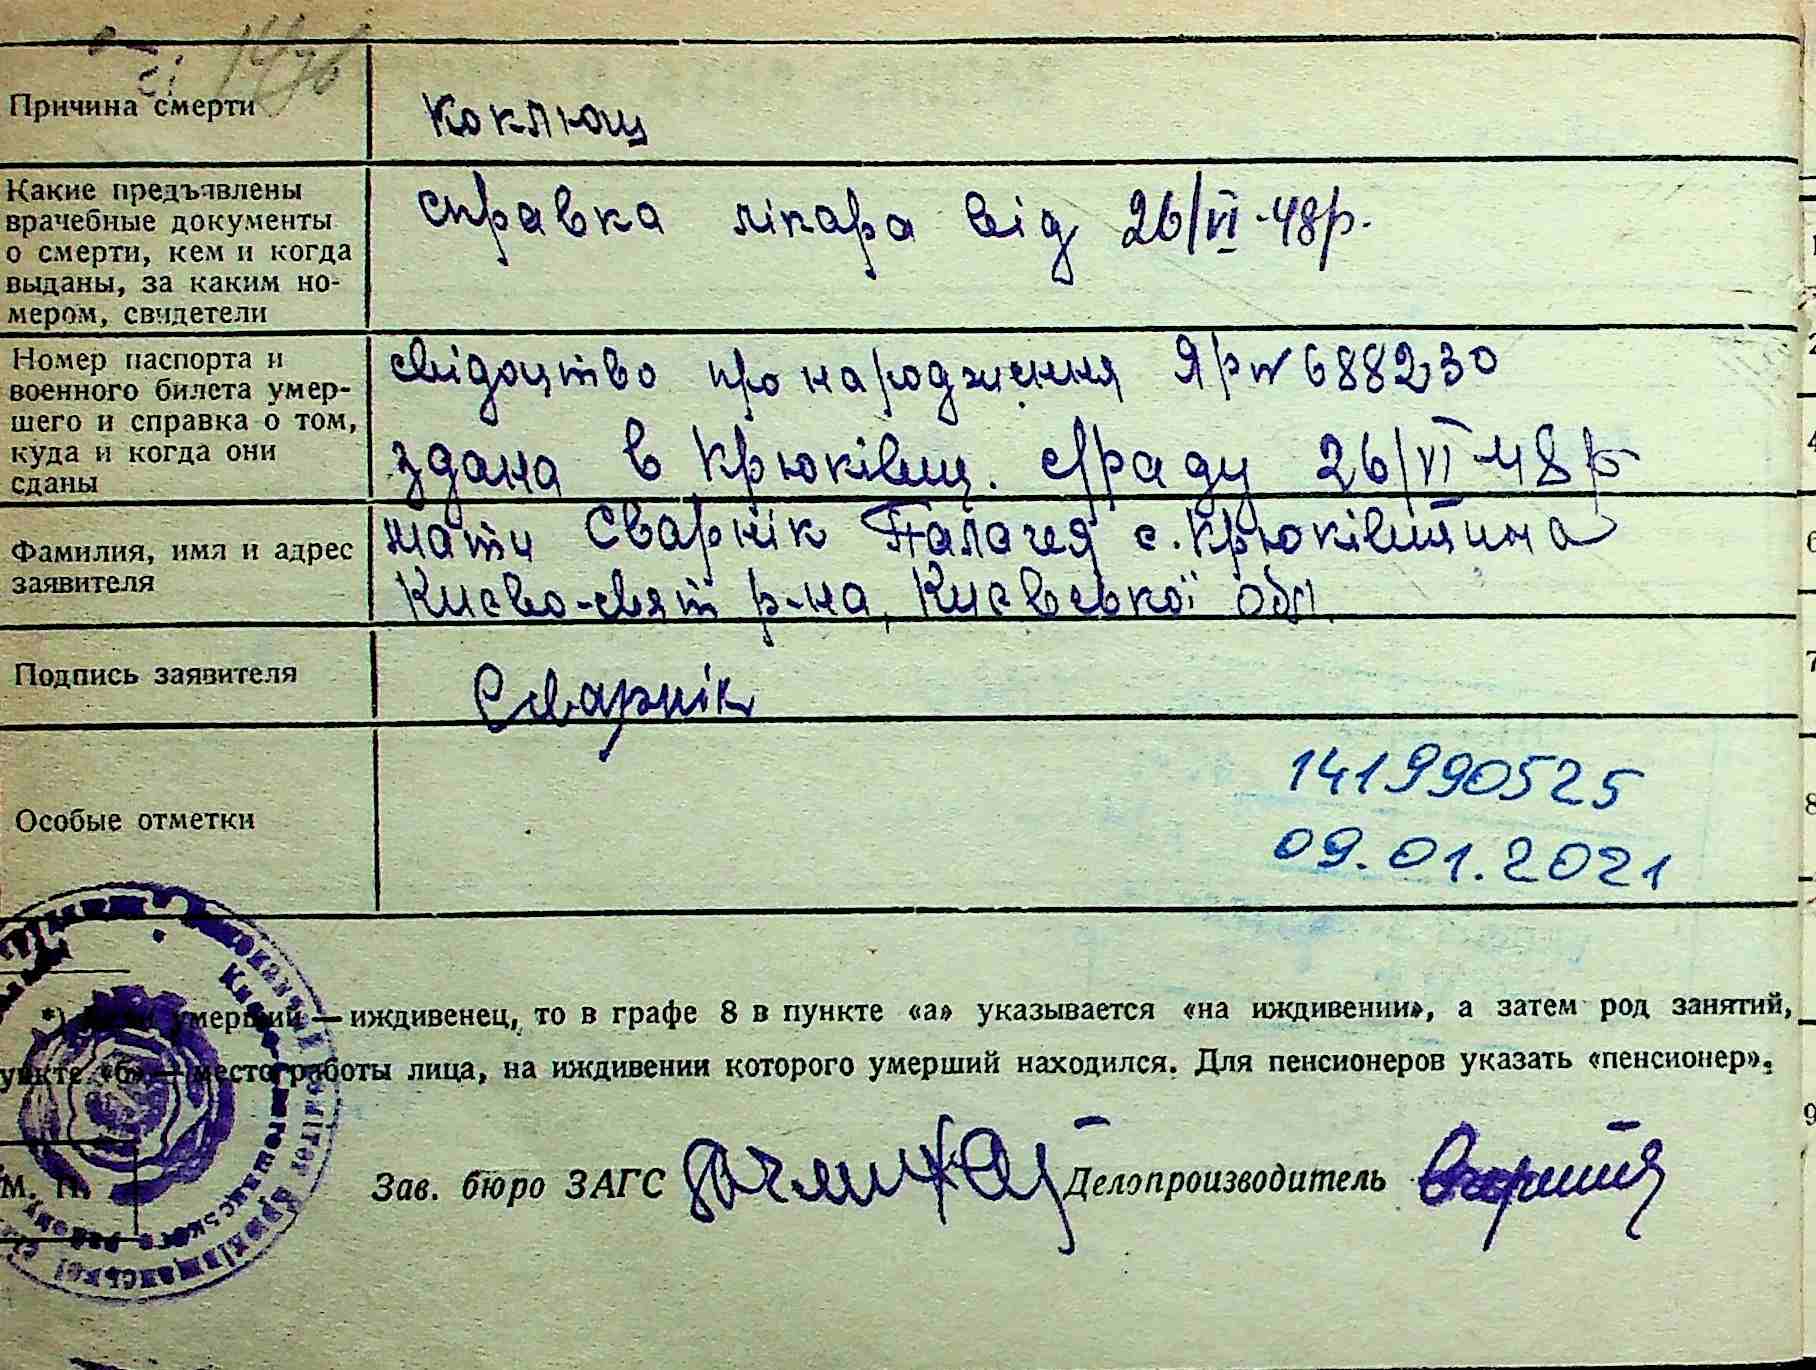 Причина смерти
Коклющ
Какие предъявлены
врачебные документы
о смерти, кем и когда
выданы, за каким но-
мером, свидетели
справка лікаря від 26/VI-48р.
Номер паспорта и
военного билета умер-
шего и справка о том,
куда и когда они
сданы
свідоцтво про народження ЯР № 688230
здана в Крюківщ. с/раду 26/VI-48р
Фамилия, имя и адрес
заявителя
мати Сварнік Палагея с. Крюківщина
Києво-свят р-на, Київської обл.
Подпись заявителя
Сварнік
Особые отметки
141990525
09.01.2021
умерший — иждивенец, то в графе 8 в пункте «а» указывается «на иждивении», а затем род занятий,
ункте «б» — место работы лица, на иждивении которого умерший находился. Для пенсионеров указать «пенсионер».
М. П.
Зав. бюро ЗАГС
Делопроизводитель